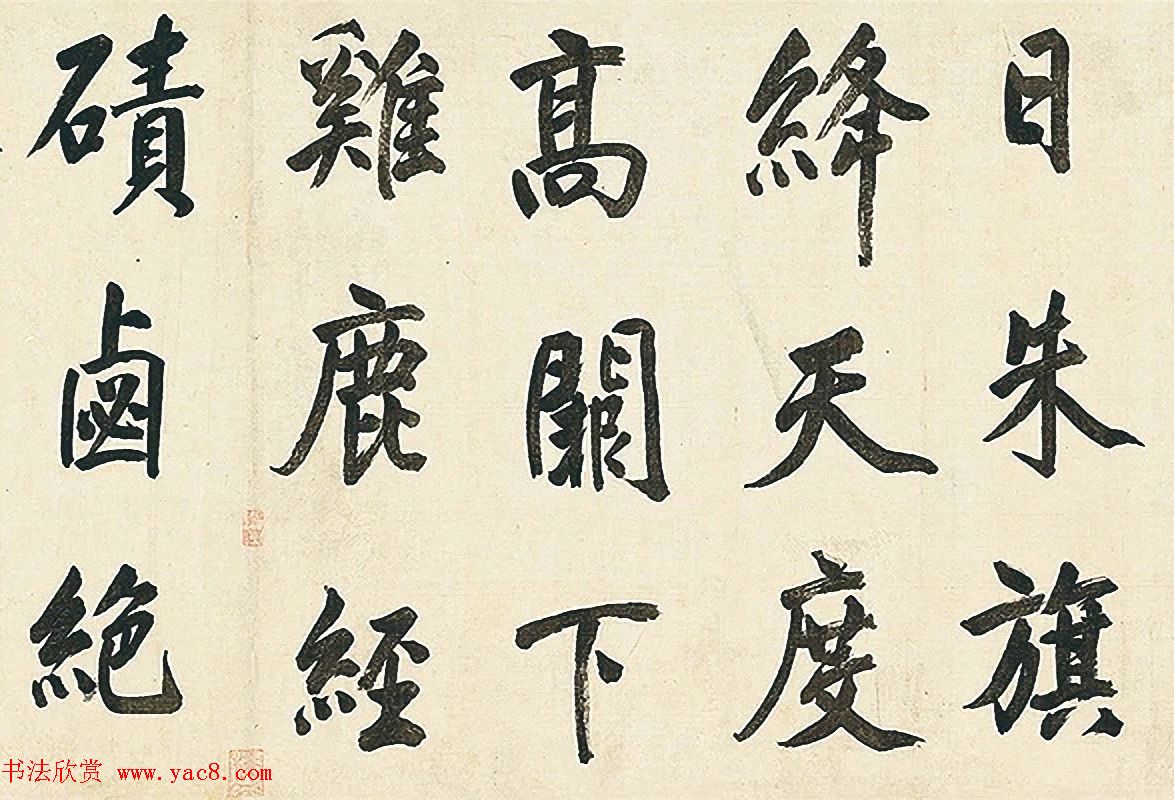 日朱旗
絳天度
高闕下
雞鹿經
磧鹵絶
书法欣赏 www.yac8.com